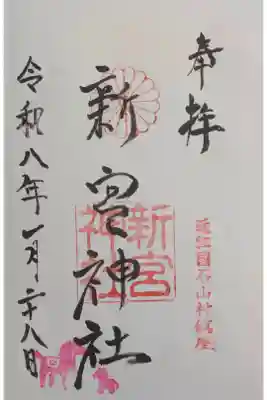 奉拝
近江国石山
新宮神社
新宮神社
令和八年一月二十八日